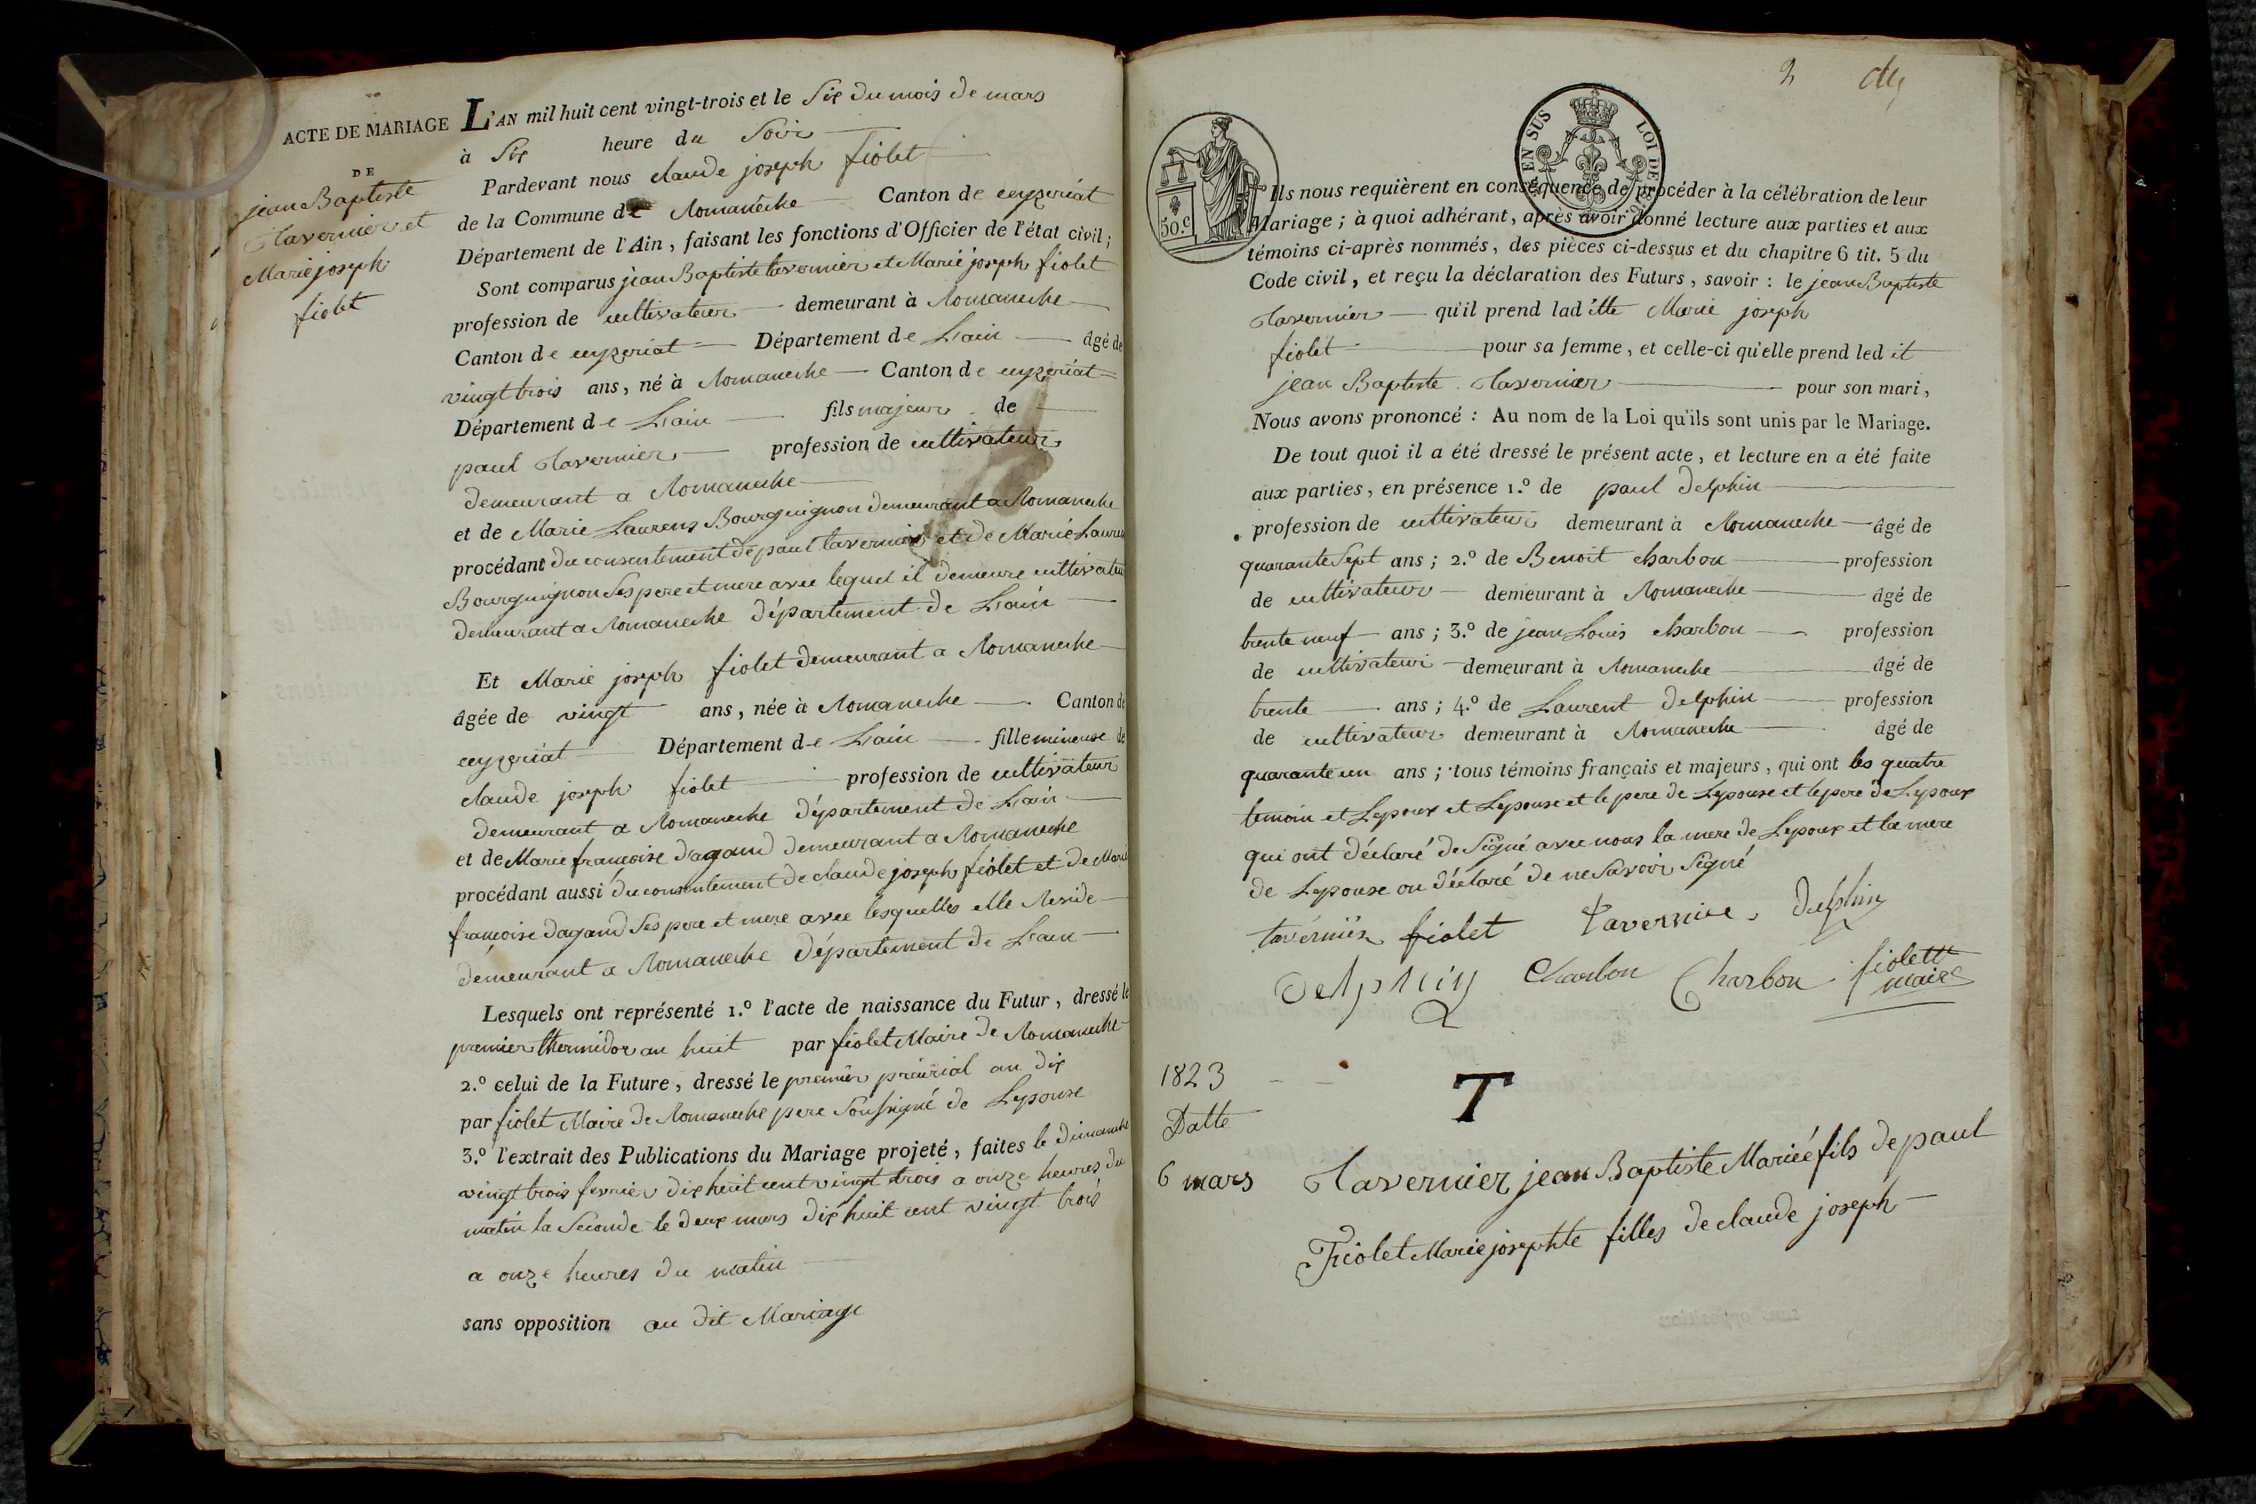 ACTE DE MARIAGE
DE
jean Baptiste
Tavernier et
Marie joseph
fiolet
L'AN mil huit cent vingt-trois et le Six du mois de mars
à Six heure du Soir
Pardevant nous claude joseph fiolet
de la Commune de Romaneche Canton de ceyzeriat
Département de l'Ain, faisant les fonctions d'Officier de l'état civil;
Sont comparus jean Baptiste tavernier et Marie joseph fiolet
profession de cultivateur demeurant à Romaneche
Canton de ceyzeriat Département de Lain âgé de
vingt trois ans, né à Romaneche Canton de ceyzeriat
Département de Lain fils majeur de
paul Tavernier profession de cultivateur
demeurant a Romaneche
et de Marie Laurens Bourguignon demeurant a Romaneche
procédant du consentement de paul tavernier et de Marie Laurens
Bourguignon Ses pere et mere avec lequel il demeure cultivateur
demeurant a Romaneche département de Lain
Et Marie joseph fiolet demeurant a Romaneche
âgée de vingt ans, née à Romaneche Canton de
ceyzeriat Département de Lain fille mineure de
claude joseph fiolet profession de cultivateur
demeurant a Romaneche département de Lain
et de Marie francoise dagand demeurant a Romaneche
procédant aussi du consentement de claude joseph fiolet et de Marie
francoise dagand Ses pere et mere avec lesquelles elle Reside
demeurant a Romaneche département de Lain
Lesquels ont représenté 1.º l'acte de naissance du Futur, dressé le
premier thermidor an huit par fiolet Maire de Romaneche
2.º celui de la Future, dressé le premier prairial an dix
par fiolet Maire de Romaneche pere Soussigné de Lepouse
3.º l'extrait des Publications du Mariage projeté, faites le dimanche
vingt trois fevrier dix huit cent vingt trois a onze heures du
matin la Seconde le deux mars dix huit cent vingt trois
a onze heures du matin
sans opposition au dit Mariage
2
EN SUS LOI DE 1816
50.c
Ils nous requièrent en conséquence de procéder à la célébration de leur
Mariage; à quoi adhérant, après avoir donné lecture aux parties et aux
témoins ci-après nommés, des pièces ci-dessus et du chapitre 6 tit. 5 du
Code civil, et reçu la déclaration des Futurs, savoir: le jean Baptiste
Tavernier qu'il prend lad itte Marie joseph
fiolet pour sa femme, et celle-ci qu'elle prend led it
jean Baptiste Tavernier pour son mari,
Nous avons prononcé: Au nom de la Loi qu'ils sont unis par le Mariage.
De tout quoi il a été dressé le présent acte, et lecture en a été faite
aux parties, en présence 1.º de paul delphin
profession de cultivateur demeurant à Romaneche âgé de
quarante Sept ans; 2.º de Benoit charbon profession
de cultivateur demeurant à Romaneche âgé de
trente neuf ans; 3.º de jean Louis charbon profession
de cultivateur demeurant à Romaneche âgé de
trente ans; 4.º de Laurent delphin profession
de cultivateur demeurant à Romaneche âgé de
quarante un ans; tous témoins français et majeurs, qui ont les quatre
temoin et Lepoux et Lepouse et le pere de Lepouse et le pere de Lepoux
qui ont déclaré de Signé avec nous la mere de Lepoux et la mere
de Lepouse on déclaré de ne Savoir Signé
taverniér fiolet tavernier delphin
delphin charbon Charbon fiolett
maire
1823
Datte
T
6 mars Tavernier jean Baptiste Marieé fils de paul
Fiolet Marie josephte filles de claude joseph